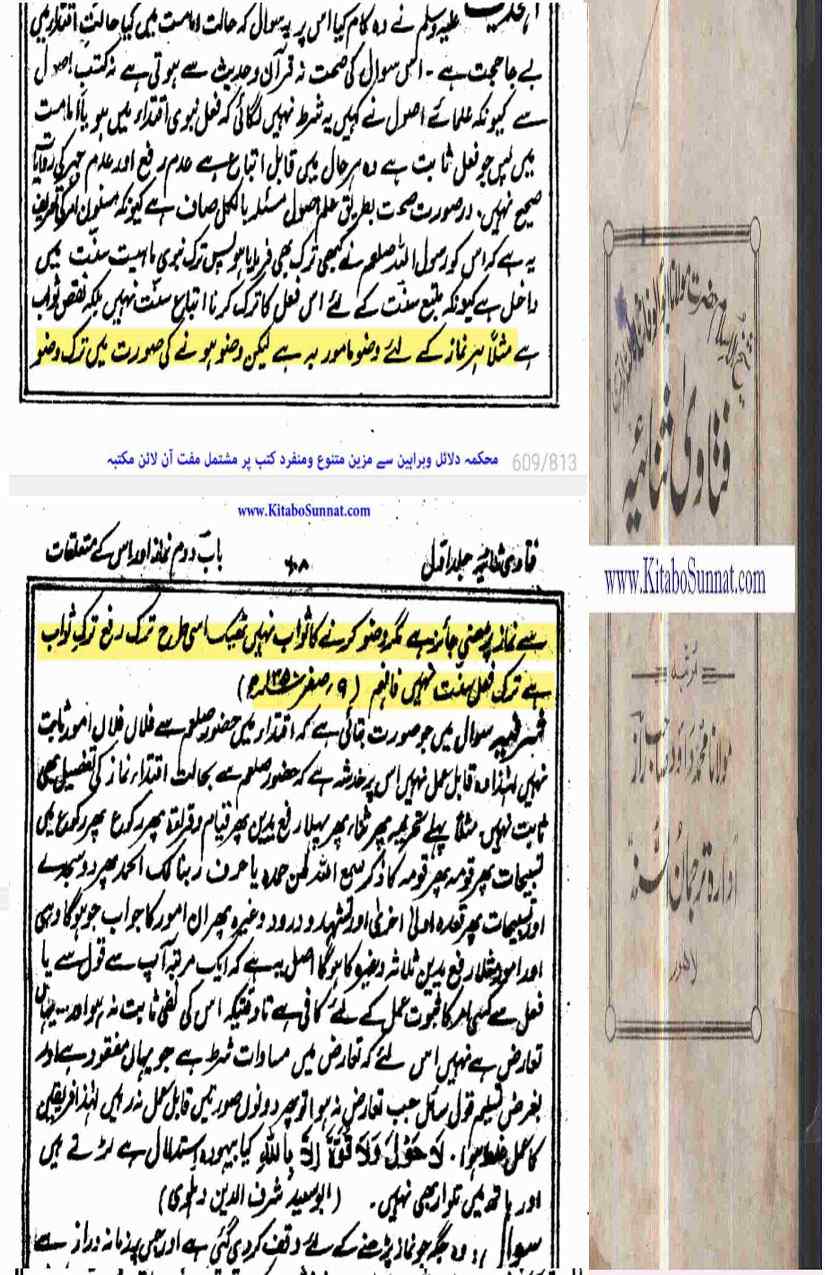 علیہ وسلم نے وہ کام کیا اس پر یہ سوال کہ حالت امامت میں کیا حالتِ اقتداء میں
بے جا حجت ہے ۔ اسی سوال کی صحت نہ قرآن و حدیث سے ہوتی ہے نہ کتب اصول
سے کیونکہ علمائے اصول نے کہیں یہ شرط نہیں لگائی کہ فعل نبوی اقتداء میں ہو یا امامت
میں پس جو فعل ثابت ہے وہ ہر حال میں قابل اتباع ہے عدم رفع اور عدم جہر کی روایات
صحیح نہیں، در صورت صحت بطریق علم اصول مسئلہ بالکل صاف ہے کیونکہ مسنون امر کی تعریف
یہ ہے کہ اس کو رسول اللہ صلعم نے کبھی ترک بھی فرمایا ہو پس ترک نبوی ماہیت سنّت میں
داخل ہے کیونکہ متبع سنّت کے لئے اس فعل کا ترک کرنا اتباع سنّت نہیں بلکہ نقص ثواب
ہے مثلاً ہر نماز کے لئے وضو مامور بہ ہے لیکن وضو ہونے کی صورت میں ترک وضو
محکمہ دلائل وبراہین سے مزین متنوع ومنفرد کتب پر مشتمل مفت آن لائن مکتبہ
609/813
www.KitaboSunnat.com
فتاویٰ ثنائیہ جلد اوّل
باب دوم نماز اور اس کے متعلقات
سے نماز پڑھنی جائز ہے مگر وضو کرنے کا ثواب نہیں ٹھیک اسی طرح ترک رفع ترکِ ثواب
ہے ترک فعل سنّت نہیں فافہم (۹ صفر
شرفیہ سوال میں جو صورت بتائی ہے کہ اقتداء میں حضور صلعم سے فلاں فلاں امور ثابت
نہیں لہٰذا وہ قابل عمل نہیں اس پر خدشہ ہے کہ حضور صلعم سے بحالت اقتداء نماز کی تفصیل بھی
ثابت نہیں، مثلاً پہلے تحریمہ پھر ثناء پھر پہلا رفع یدین پھر قیام و قراۃ پھر رکوع پھر رکوع میں
تسبیحات پھر قومہ پھر قومہ کا ذکر سمع اللہ لمن حمدہ یا صرف ربنا لک الحمد پھر دو سجدے
اور تسبیحات پھر قعدہ اولیٰ اخریٰ اور تشہد و درود وغیرہ پھر ان امور کا جواب جو ہوگا وہی
اور امور مثلاً رفع یدین ثلاثہ وغیرہ کا ہوگا اصل یہ ہے کہ ایک مرتبہ آپ سے قول سے یا
فعل سے کسی امر کا ثبوت عمل کے لئے کافی ہے تاوقتیکہ اس کی نفی ثابت نہ ہو اور یہاں
تعارض ہے نہیں اس لئے کہ تعارض میں مساوات شرط ہے جو یہاں مفقود ہے اور
بفرض تسلیم قول سائل جب تعارض نہ ہوا تو پھر دونوں صورتیں قابل عمل نہ رہیں لہٰذا فریقین
کا عمل غلط ہوا۔ لَا حَوْلَ وَلَا قُوَّةَ إِلَّا بِاللّٰهِ کیا بیہودہ استدلال ہے لڑتے ہیں
اور ہاتھ میں تلوار بھی نہیں۔ (ابو سعید شرف الدین دہلوی)
سوال : وہ جگہ جو نماز پڑھنے کے لئے وقف کر دی گئی ہے اور جس پر زمانہ دراز سے
فتاویٰ ثنائیہ
www.KitaboSunnat.com
مُرتبہ
مولانا محمد داؤد صاحب راز
ادارہ ترجمان السنہ
لاہور